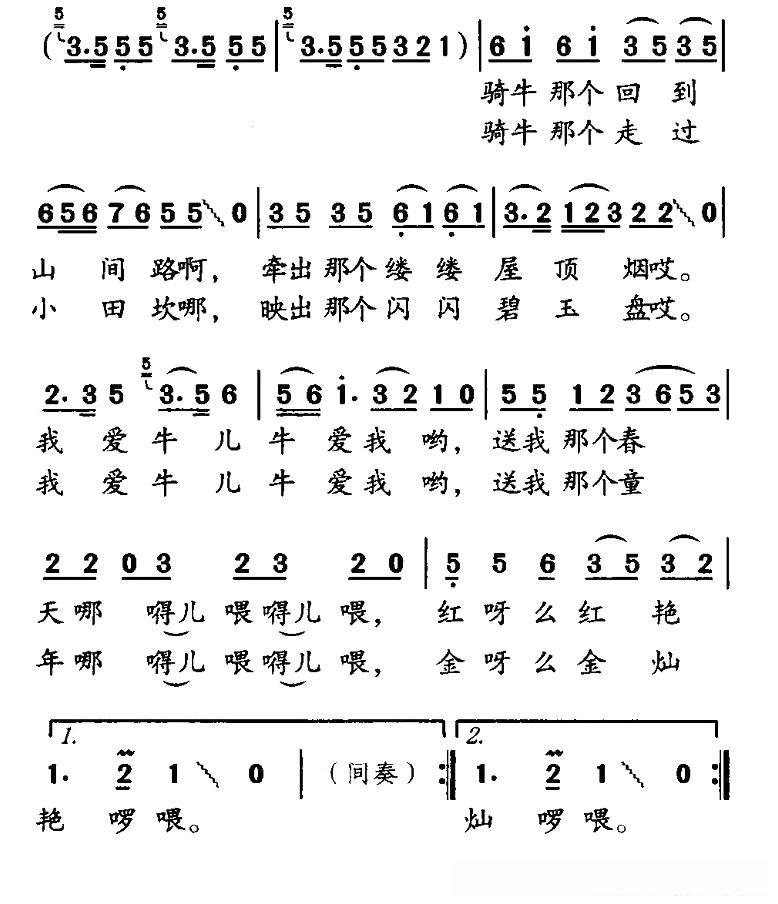 5 5 5
( 3. 5 5 5 3. 5 5 5 | 3. 5 5 5 3 2 1 ) | 6 1 6 1 3 5 3 5 |
骑牛 那个 回 到
骑牛 那个 走 过
6 5 6 7 6 5 5 0 | 3 5 3 5 6 1 6 1 | 3. 2 1 2 3 2 2 0 |
山 间 路啊, 牵出 那个 缕 缕 屋 顶 烟哎。
小 田 坎哪, 映出 那个 闪 闪 碧 玉 盘哎。
5
2. 3 5 3. 5 6 | 5 6 1. 3 2 1 0 | 5 5 1 2 3 6 5 3 |
我 爱 牛 儿 牛 爱 我 哟, 送我 那个春
我 爱 牛 儿 牛 爱 我 哟, 送我 那个童
2 2 0 3 2 3 2 0 | 5 5 6 3 5 3 2 |
天 哪 嘚儿 喂 嘚儿 喂, 红 呀 么 红 艳
年 哪 嘚儿 喂 嘚儿 喂, 金 呀 么 金 灿
1. 2.
1. 2 1 0 | (间奏) :| 1. 2 1 0 :|
艳 啰 喂。 灿 啰 喂。